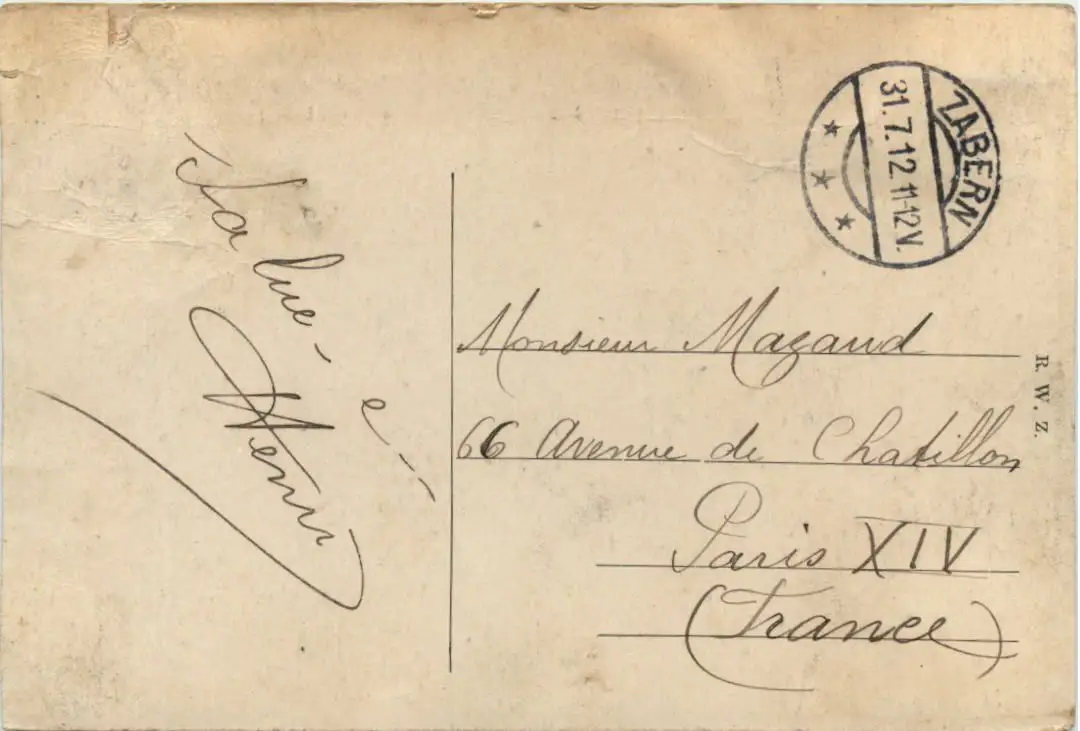 ZABERN
31.7.12 11-12V.
Henri
Monsieur Mazaud
66 Avenue de Chatillon
Paris XIV
(France)
R. W. Z.